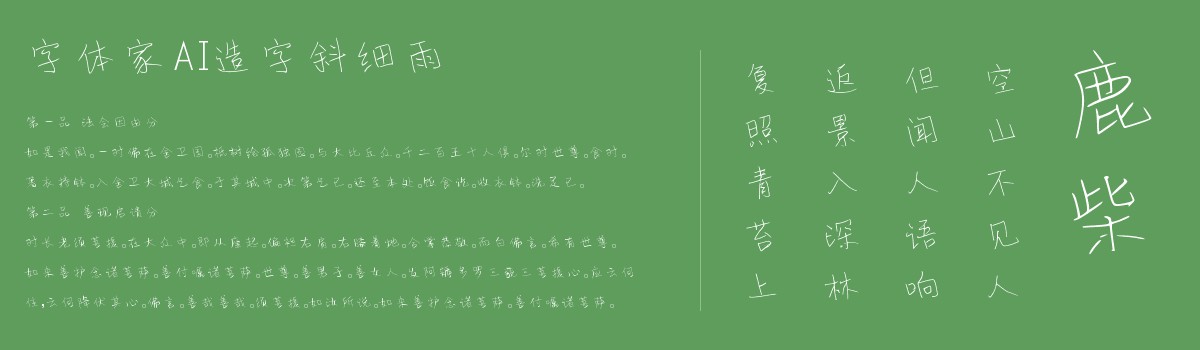 字体家AI造字斜细雨
第一品 法会因由分
如是我闻。一时佛在舍卫国。祇树给孤独园。与大比丘众。千二百五十人俱。尔时世尊。食时。
著衣持钵。入舍卫大城乞食。于其城中。次第乞已。还至本处。饭食讫。收衣钵。洗足已。
第二品 善现启请分
时长老须菩提。在大众中。即从座起。偏袒右肩。右膝着地。合掌恭敬。而白佛言。希有世尊。
如来善护念诸菩萨。善付嘱诸菩萨。世尊。善男子。善女人。发阿耨多罗三藐三菩提心。应云何
住,云何降伏其心。佛言。善哉善哉。须菩提。如汝所说。如来善护念诸菩萨。善付嘱诸菩萨。
鹿柴
空山不见人
但闻人语响
返景入深林
复照青苔上